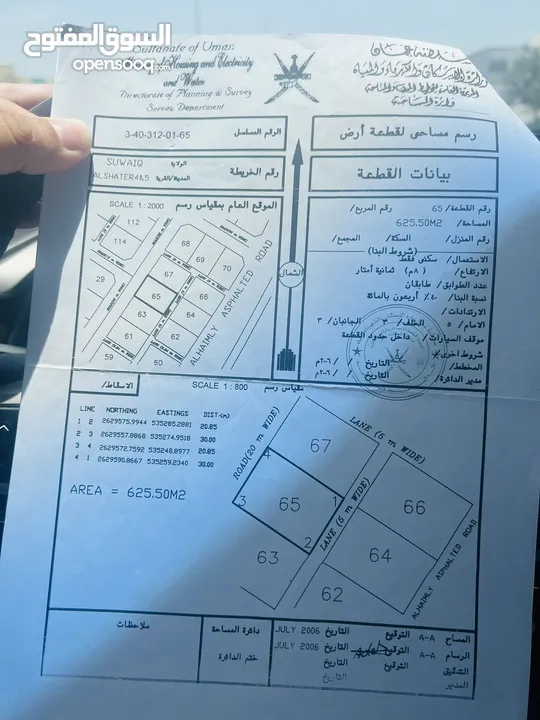 السوق المفتوح
opensooq.com
Sultanate of Oman
Housing and Electricity
and Water
Directorate of Planning & Survey
Survey Department
3-40-312-01-65 الرقم المسلسل
رسم مساحي لقطعة أرض
SUWAIQ الولاية
ALSHATER4&5 المدينة/القرية
رقم الخريطة
بيانات القطعة
SCALE 1 : 2000 الموقع العام بمقياس رسم
112
114
68
70
67
29
65
66
63
64
61
62
59
50
ALHAIMLY ASPHALTED ROAD
الشمال
رقم القطعة/ 65 رقم المربع/
المساحة/ 625.50M2
رقم المنزل/ السكة/ المجمع/
(شروط البناء)
الاستعمال/ سكني فقط
الارتفاع/ (٨م) ثمانية أمتار
عدد الطوابق/ طابقان
نسبة البناء/ ٤٠٪ أربعون بالمائة
الارتدادات/
الامام/ ٥ الخلف/ ٣ الجانبان/ ٣
موقف السيارات/ داخل حدود القطعة
شروط اخرى/
المخطط/ التاريخ / /٢٠٠٦م
مدير الدائرة/ التاريخ / /٢٠٠٦م
الاسقاط/
SCALE 1 : 800 مقياس رسم
LINE NORTHING EASTINGS DIST(m)
1 2 2629575.9944 535285.2881 20.85
2 3 2629557.8868 535274.9518 30.00
3 4 2629572.7592 535248.8977 20.85
4 1 2629590.8667 535259.2340 30.00
AREA = 625.50M2
ROAD(20 m WIDE)
LANE (5 m WIDE)
67
4
3
65
1
2
LANE (5 m WIDE)
66
64
63
62
ALHAIMLY ASPHALTED ROAD
ملاحظات
دائرة المساحة
ختم الدائرة
المساح A-A التوقيع التاريخ JULY 2006
الرسام A-A التوقيع التاريخ JULY 2006
التدقيق التوقيع التاريخ
المدير التاريخ